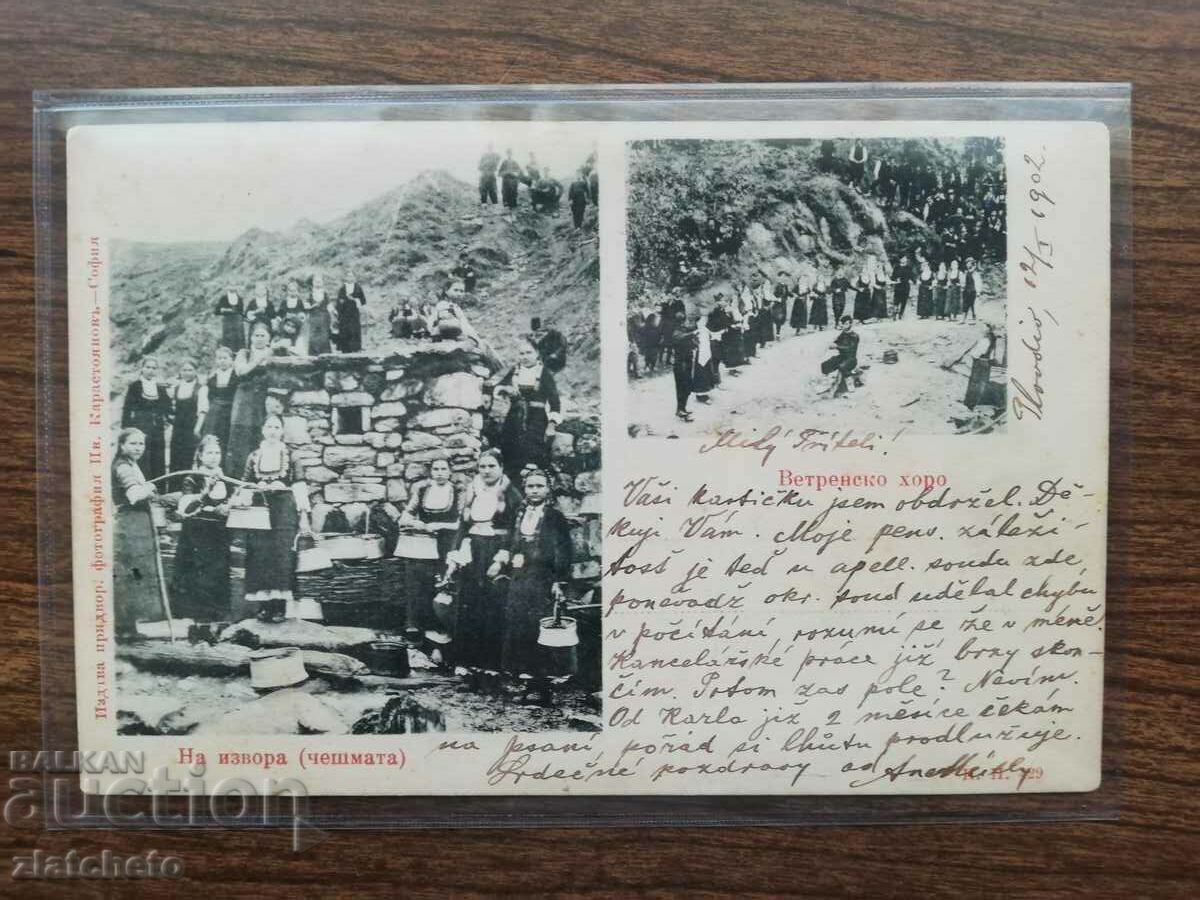 Издава придвор. фотография Ив. Карастояновъ.—София
На извора (чешмата)
Ветренско хоро
12/X 1902.
Milý Příteli!
Vaši kartičku jsem obdržel. Dě-
kuji Vám. Moje pens. záleži
tosť je teď u apell. soudu zde,
poněvadž okr. soud udělal chybu
v počítání, rozumí se že v méně.
Kancelářské práce již brzy skon-
čím. Potom zas pole? Nevím.
Od Karla již 2 měsíce čekám
na psaní, pořád si lhůtu prodlužuje.
Srdečné pozdravy od
29
BALKAN
AUCTION
zlatcheto